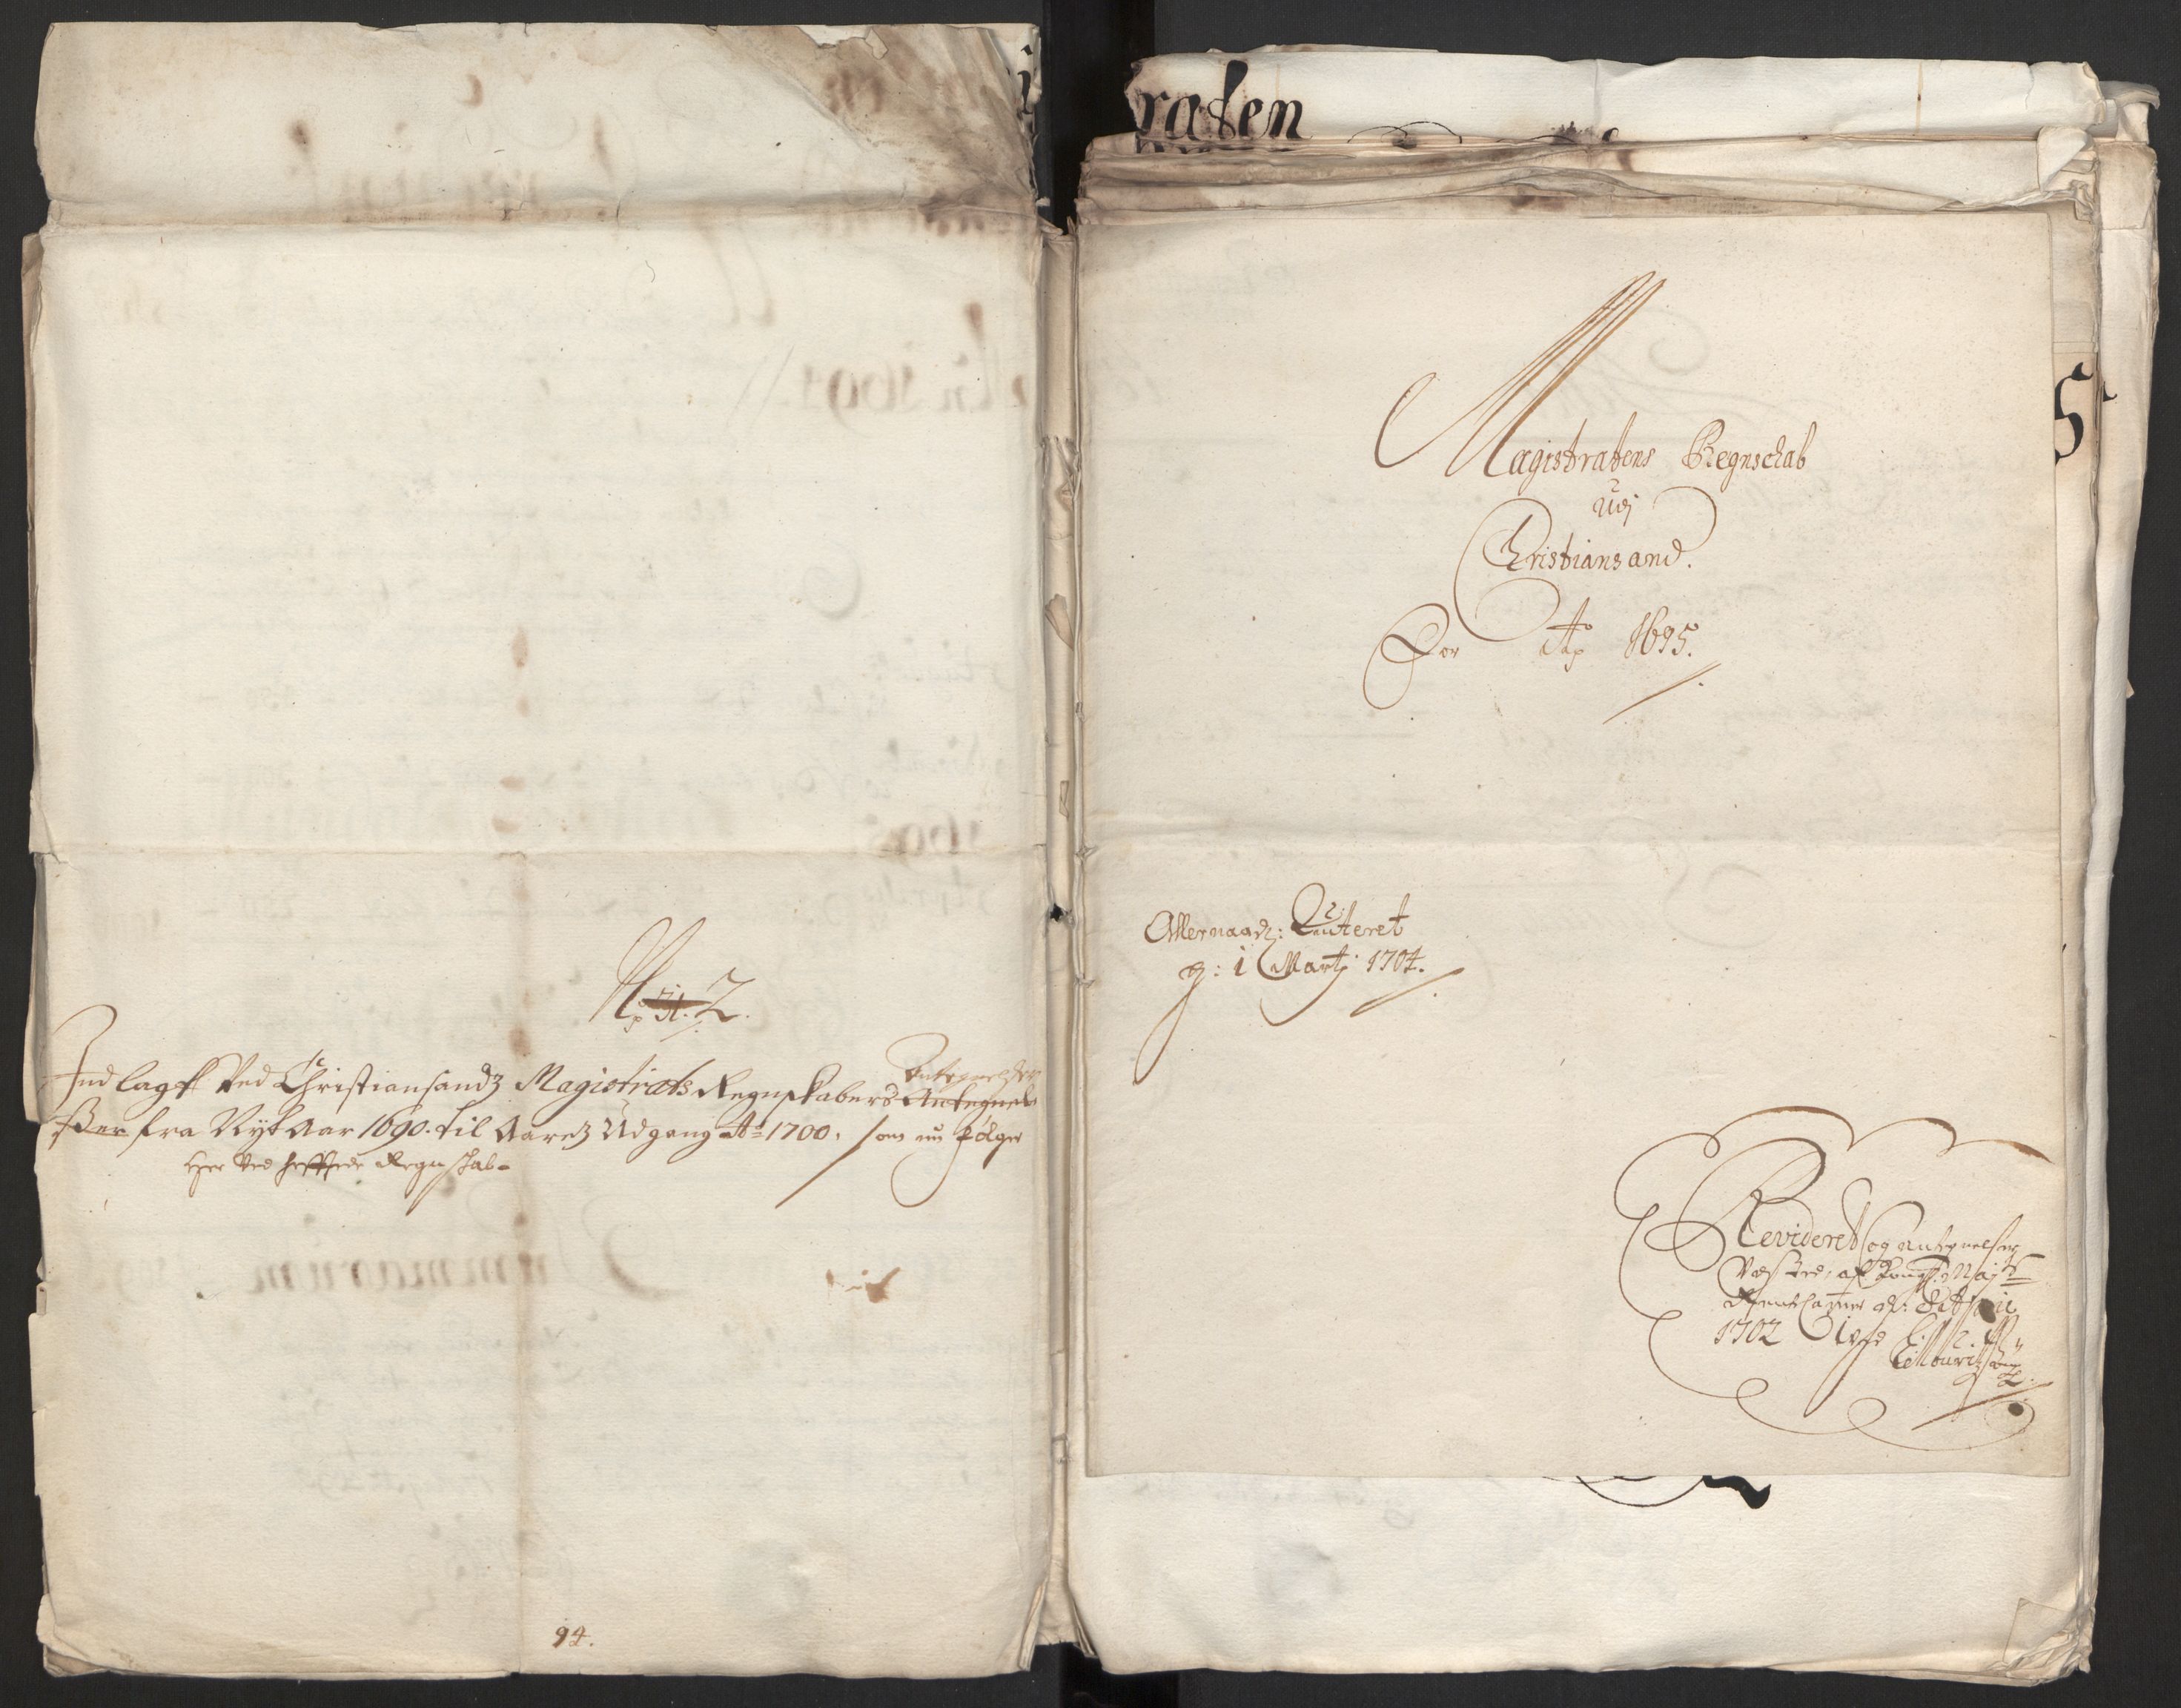 No 2.
Indlagt Ved Christiansandz Magistrats Regnskabers Antegnel
sser fra Nyt Aar 1690. til Aarez Udgang Ao 1700. som nu følger
Her Ved heftede Regnskab
94.
raten
Magistratens Regnschab
Udj
Christiansand.
For Ao 1695.
Allernaad: Quiteret
d: 1 Martj 1704.
Revideret og Antegnelser
af Kongl. Maj
Rentekamer d:
1702
5